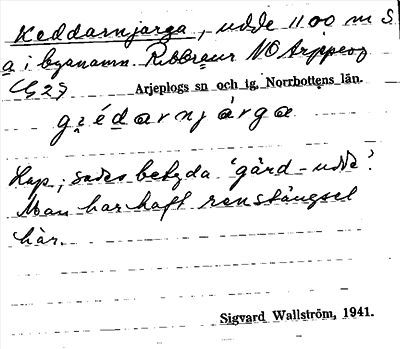 Keddarnjarga, udde 1100 m S
a i byanamn Rebreur NO Arjeplog
25 Arjeplogs sn och tg, Norrbottens län.
giédarnjárga
Lap; sades betyda 'gård-udde'.
Man har haft renstängsel
här.
Sigvard Wallström, 1941.